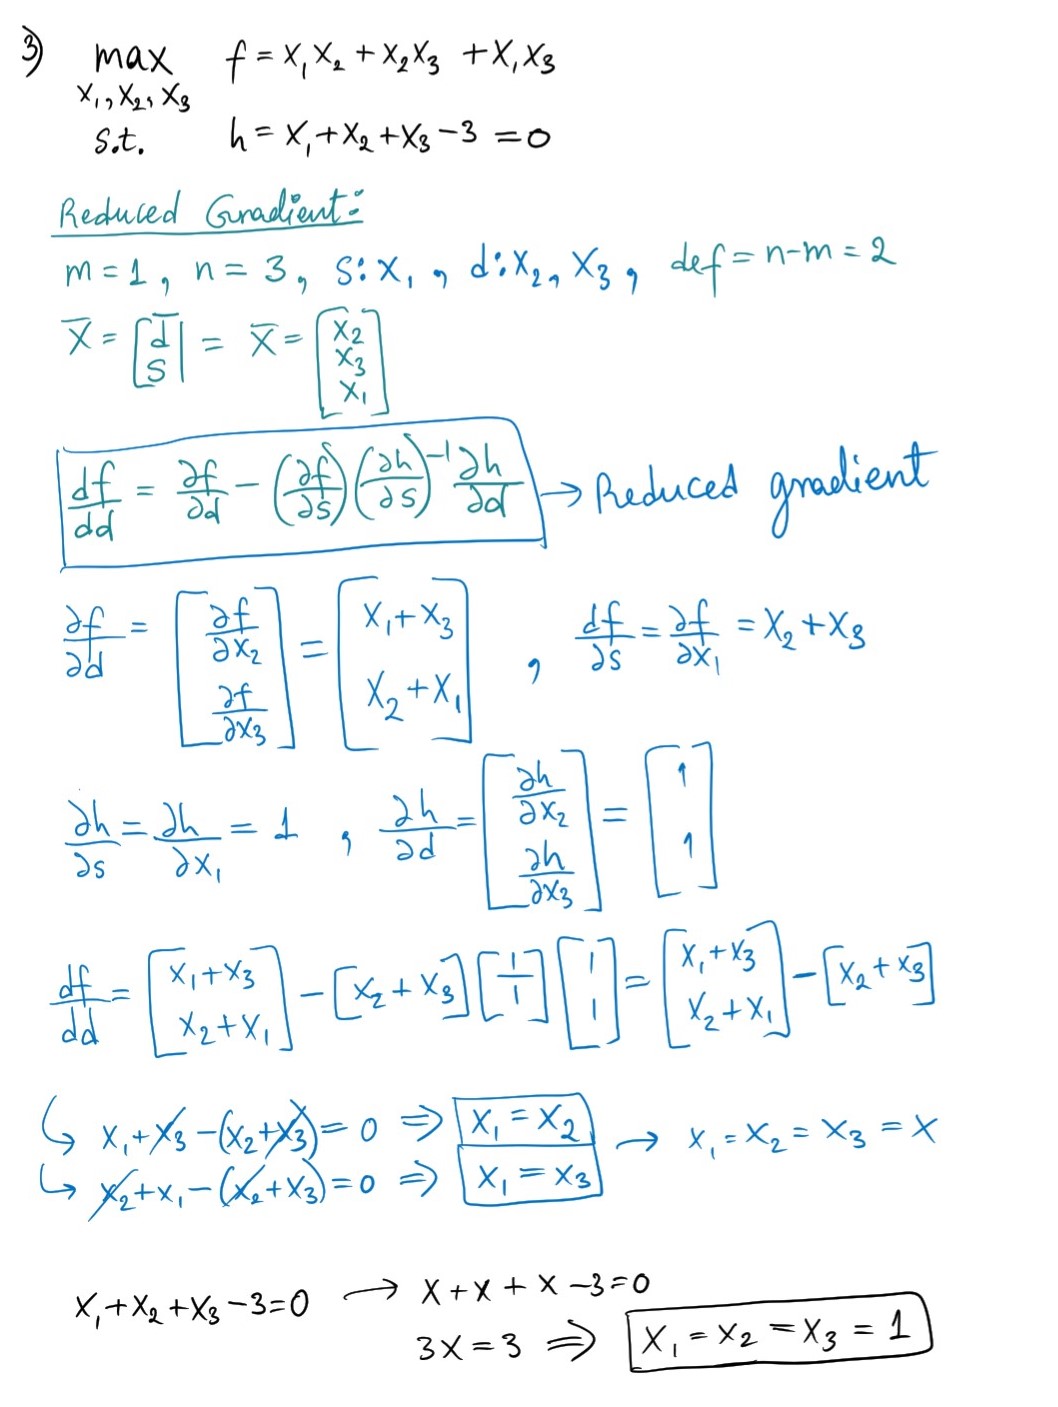 3) max f = x₁x₂ + x₂x₃ + x₁x₃
x₁, x₂, x₃
s.t. h = x₁ + x₂ + x₃ - 3 = 0
Reduced Gradient:
m = 1, n = 3, s: x₁, d: x₂, x₃, def = n-m = 2
x̄ = [d̄ s] = x̄ = [x₂ x₃ x₁]
df/dd = ∂f/∂d - (∂f/∂s)(∂h/∂s)⁻¹ ∂h/∂d → Reduced gradient
∂f/∂d = [∂f/∂x₂ ∂f/∂x₃] = [x₁+x₃ x₂+x₁], df/∂s = ∂f/∂x₁ = x₂+x₃
∂h/∂s = ∂h/∂x₁ = 1, ∂h/∂d = [∂h/∂x₂ ∂h/∂x₃] = [1 1]
df/dd = [x₁+x₃ x₂+x₁] - [x₂+x₃][1/1][1 1] = [x₁+x₃ x₂+x₁] - [x₂+x₃]
↳ x₁+x₃-(x₂+x₃)=0 ⇒ x₁=x₂ → x₁=x₂=x₃=x
↳ x₂+x₁-(x₂+x₃)=0 ⇒ x₁=x₃
x₁+x₂+x₃-3=0 → x+x+x-3=0
3x=3 ⇒ x₁=x₂=x₃=1